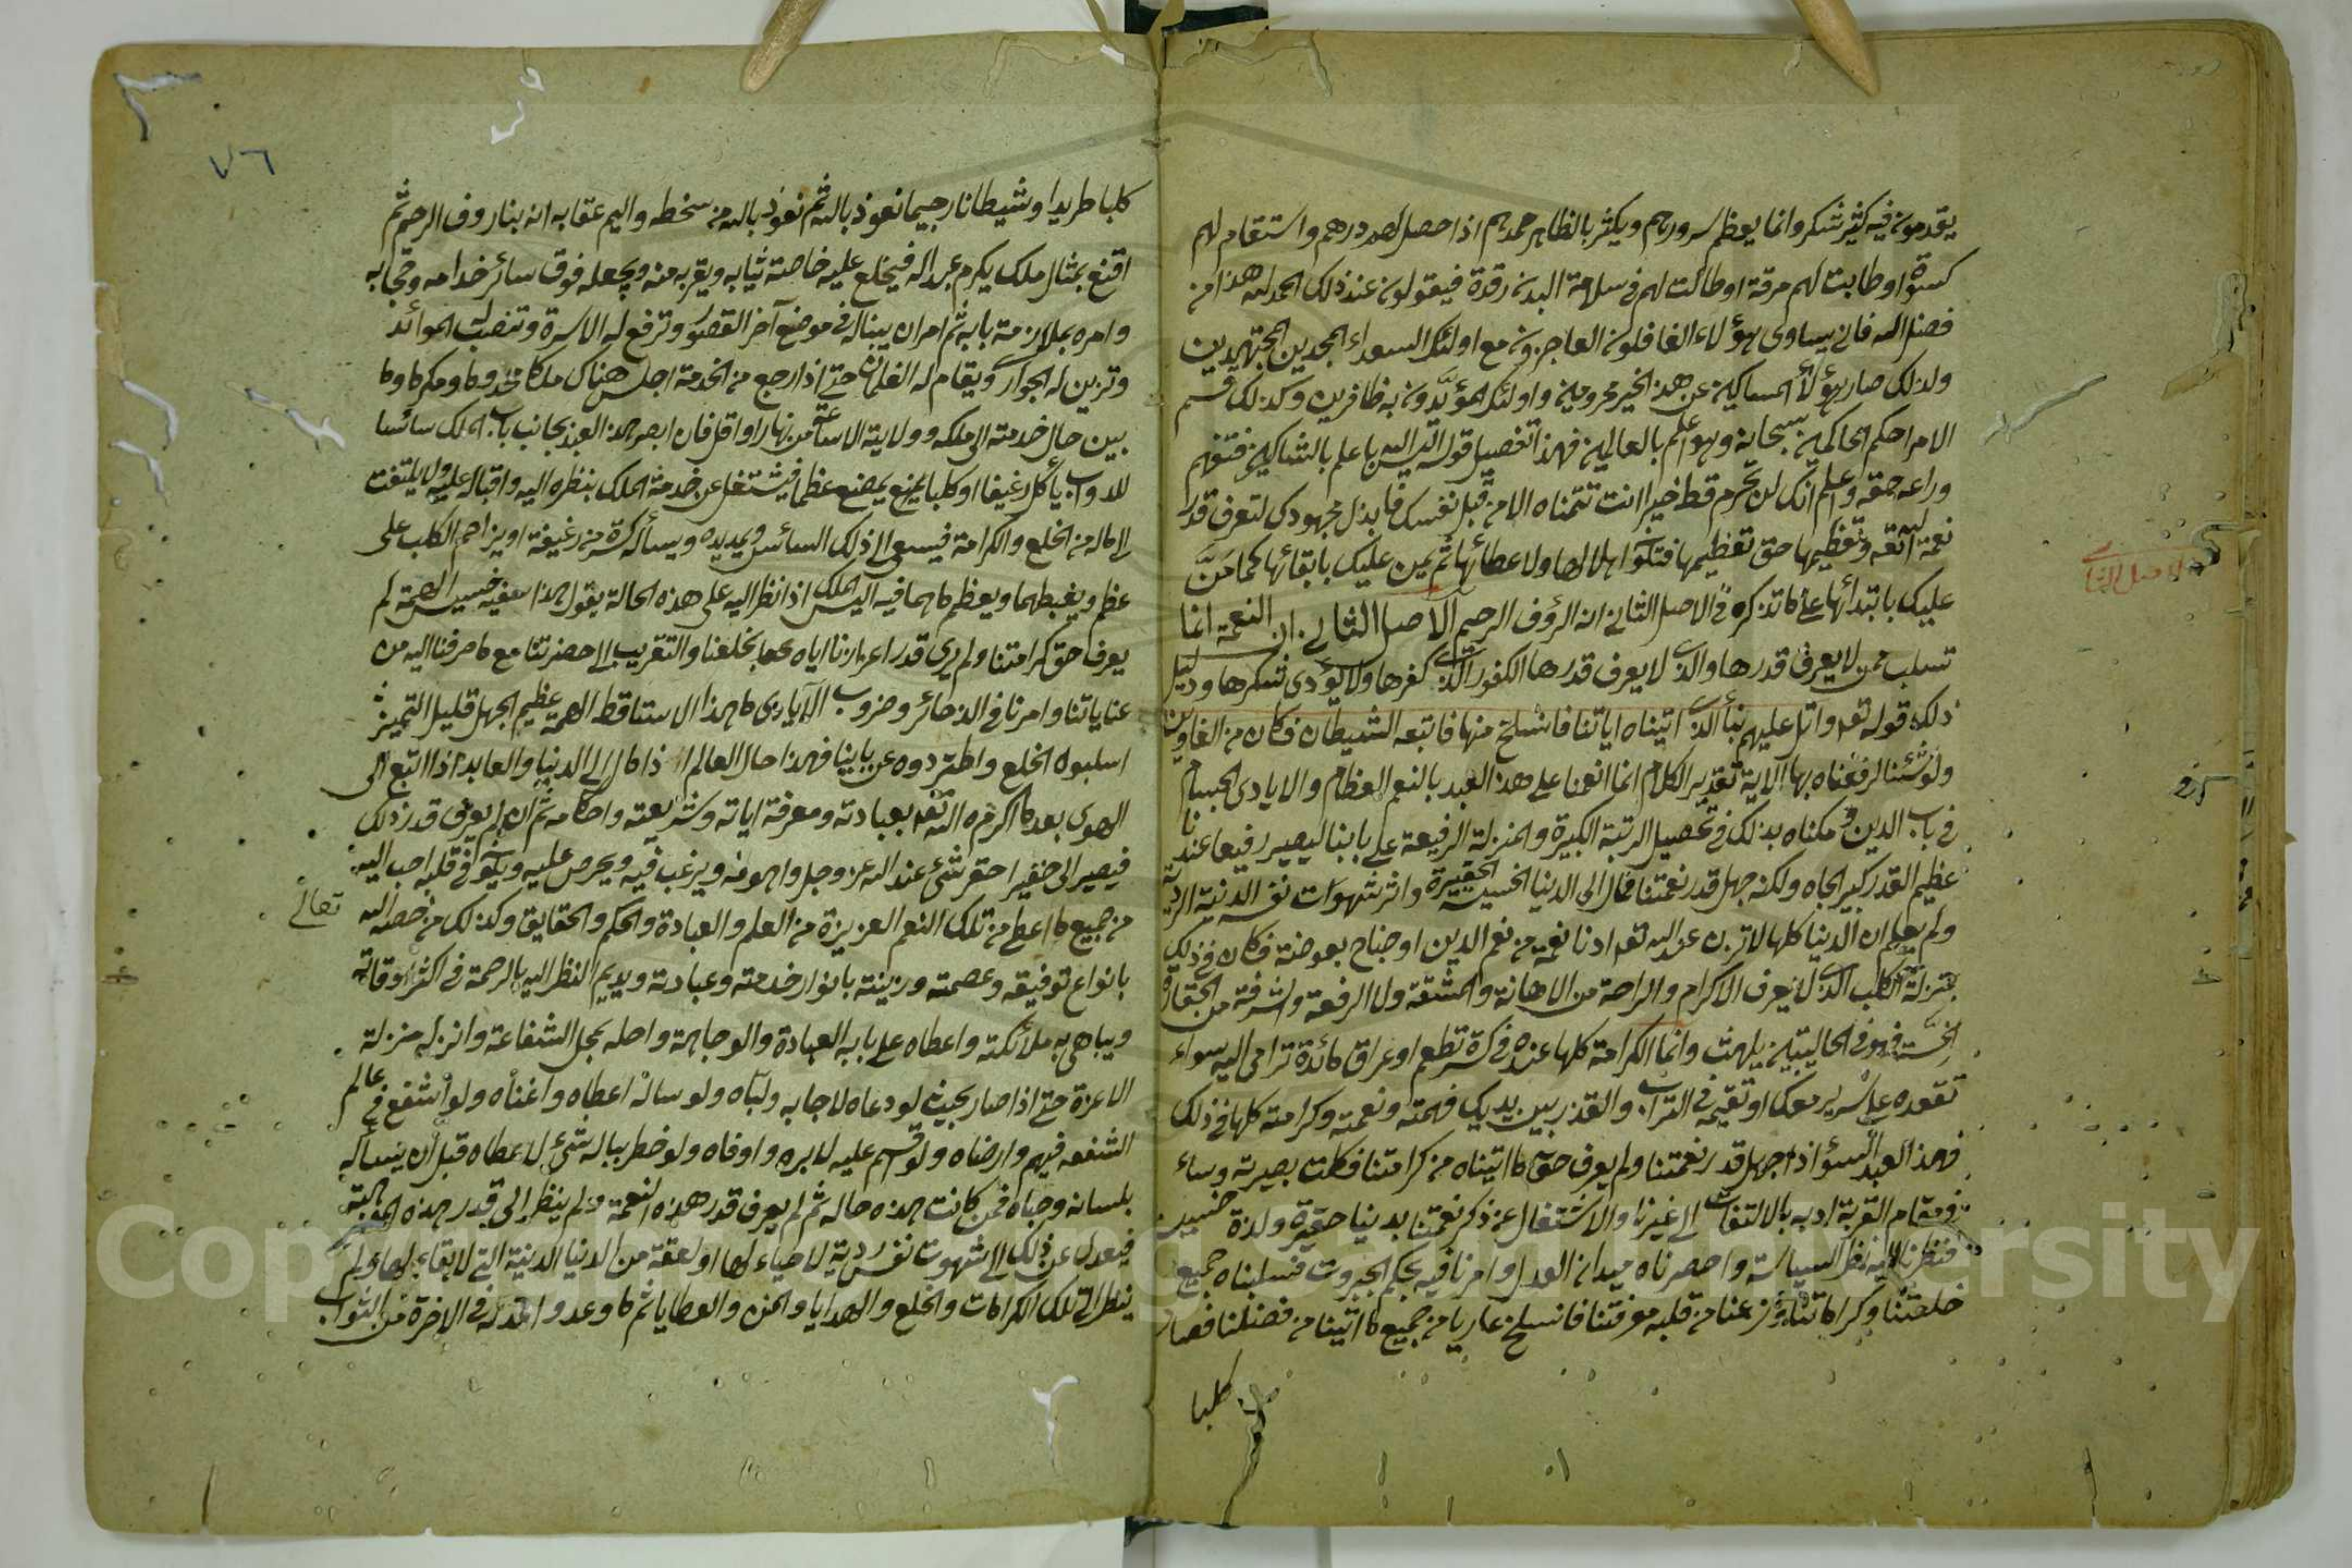 يقدمونه فيه كثير شكر وانما يعظم سرورهم ويكثر بالظاهر حمدهم اذا حصل لهم درهم واستقام لهم
كسوة او طابت لهم مرقة او طالت لهم في سلامة البدن رقدة فيقولون عند ذلك الحمد لله هذا من
فضل الله فانى يساوى هؤلاء الغافلون العاجزون مع اولئك السعداء المجدين المجتهدين
ولذلك صار هؤلاء المساكين عن هذا الخير محرومين واولئك المؤيدون به ظافرين وكذلك قسم
الامر احكم الحاكمين سبحانه وهو اعلم بالعالمين فهذا تفصيل قوله اليس الله باعلم بالشاكرين فتفهم
وراعه حقه واعلم انك لن تحرم قط خيرا انت تتمناه الا من قبل نفسك فابذل مجهودك لتعرف قدر
نعمة الله تعه وتعظيمها حق تعظيمها فتكون اهلا لها ولاعطائها ثم يمن عليك بابقائها كما من
عليك بابتدائها على ما نذكره في الاصل الثاني انه الرؤف الرحيم الاصل الثاني ان النعمة انما
تسلب ممن لا يعرف قدرها والذي لا يعرف قدرها الكفور الذي كفرها ولا يؤدى شكرها ودليل
ذلك قوله تعه واتل عليهم نبأ الذي اتيناه اياتنا فانسلخ منها فاتبعه الشيطان فكان من الغاوين
ولو شئنا لرفعناه بها الآية تقدير الكلام انما انعمنا على هذا العبد بالنعم العظام والايادى الجسام
في باب الدين ومكناه بذلك في تحصيل الرتبة الكبيرة والمنزلة الرفيعة على بابنا ليصير رفيعا عندنا
عظيم القدر كبير الجاه ولكنه جهل قدر نعمتنا فمال الى الدنيا الخسيسة الحقيرة واثر شهوات نفسه الدنية الردية
ولم يعلم ان الدنيا كلها لا تزن عند الله تعه ادنا نعمة من نعم الدين او جناح بعوضة فكان في ذلك
بمنزلة الكلب الذي لا يعرف الاكرام والراحة من الاهانة والمشقة ولا الرفعة والشرفة من الحقارة
الخسة فهو في الحالتين يلهث وانما الكرامة كلها عنده في كسرة تطعم او عراق مائدة ترامى اليه سواء
تقعده على سرير معك او تقيمه في التراب والقذر بين يديك فهمته ونعمته وكرامته كلها في ذلك
فهذا العبد السؤ اذا جهل قدر نعمتنا ولم يعرف حق ما اتيناه من كرامتنا فكلت بصيرته وساء
في مقام القربة ادبه بالالتفات الى غيرنا والاشتغال عن ذكر نعمتنا بدنيا حقيرة ولذة خسيسة
فنظرنا اليه نظر السياسة واحضرناه ميدان العدل وامرنا فيه بحكم الجبروت فسلبناه جميع
خلعتنا وكراماتنا ونزعنا من قلبه معرفتنا فانسلخ عاريا من جميع ما اتينا من فضلنا فصار
كلبا
الاصل الثاني
٧٦
كلبا طريدا وشيطانا رجيما نعوذ بالله ثم نعوذ بالله من سخطه واليم عقابه انه بنا روف الرحيم ثم
اقنع بمثال ملك يكرم عبدا له فيخلع عليه خاصة ثيابه ويقربه منه ويجعله فوق سائر خدامه وحجابه
وامره بملازمة بابه ثم امر ان يبنا له في موضع آخر القصور وترفع له الاسرة وتنصب الموائد
وتزين له الجوار ويقام له الغلمان حتى اذا رجع من الخدمة اجلس هناك ملكا مخدوما ومكرما وما
بين حال خدمته الى ملكه وولايته الا ساعة من نهار او اقل فان ابصر هذا العبد بجانب باب الملك سائسا
للدواب ياكل رغيفا او كلبا يمضغ عظما فيشتغل عن خدمة الملك بنظره اليه واقباله عليه ولا يلتفت
الى ماله من الخلع والكرامة فيسعى الى ذلك السائس ويمد يده ويسأله كسرة من رغيفه او يزاحم الكلب على
عظم ويغبطهما ويعظم ما هما فيه اليس الملك اذا نظر اليه على هذه الحالة يقول هذا سفيه خسيس الهمة لم
يعرف حق كرامتنا ولم يرى قدر اعزازنا اياه بخلعنا والتقريب الى حضرتنا مع ما صرفنا اليه من
عناياتنا وامرنا في الذخائر وضروب الآيادى ما هذا الا ساقط الهمة عظيم الجهل قليل التميز
اسلبوه الخلع واطردوه عن بابنا فهذا حال العالم اذا مال الى الدنيا والعابد اذا اتبع الى
الهوى بعد ما اكرمه الله تعه بعبادته ومعرفة اياته وشريعته واحكامه ثم انه لم يعرف قدر ذلك
فيصير الى احقر شئ عند الله عز وجل واهونه ويرغب فيه ويحرص عليه ويكون في قلبه احب اليه
من جميع ما اعطى من تلك النعم العزيزة من العلم والعبادة والحكم والحقايق وكذلك من خصه الله تعالى
بانواع توفيقه وعصمته وزينته بانوار خدمته وعبادته ويديم النظر اليه بالرحمة في اكثر اوقاته
ويباهى به ملائكته واعطاه على بابه العبادة والوجاهة واحله محل الشفاعة وانزله منزلة
الاعزة حتى اذا صار بحيث لو دعاه لاجابه ولباه ولو ساله اعطاه واغناه ولو شفع في عالم
الشفعه فيهم وارضاه ولو اقسم عليه لابره واوفاه ولو خطر بباله شئ لاعطاه قبل ان يسأله
بلسانه وحباه فمن كانت هذه حاله ثم لم يعرف قدر هذه النعمة ولم ينظر الى قدر هذه المنزلة
فيعدل عن ذلك الى شهوت نفس ردية لا حياء لها او لعقة من الدنيا الدنية التي لا بقاء لها ولم
ينظر الى تلك الكرامات والخلع والهدايا والمنن والعطايا ثم ما وعد واعد له في الاخرة من الثواب